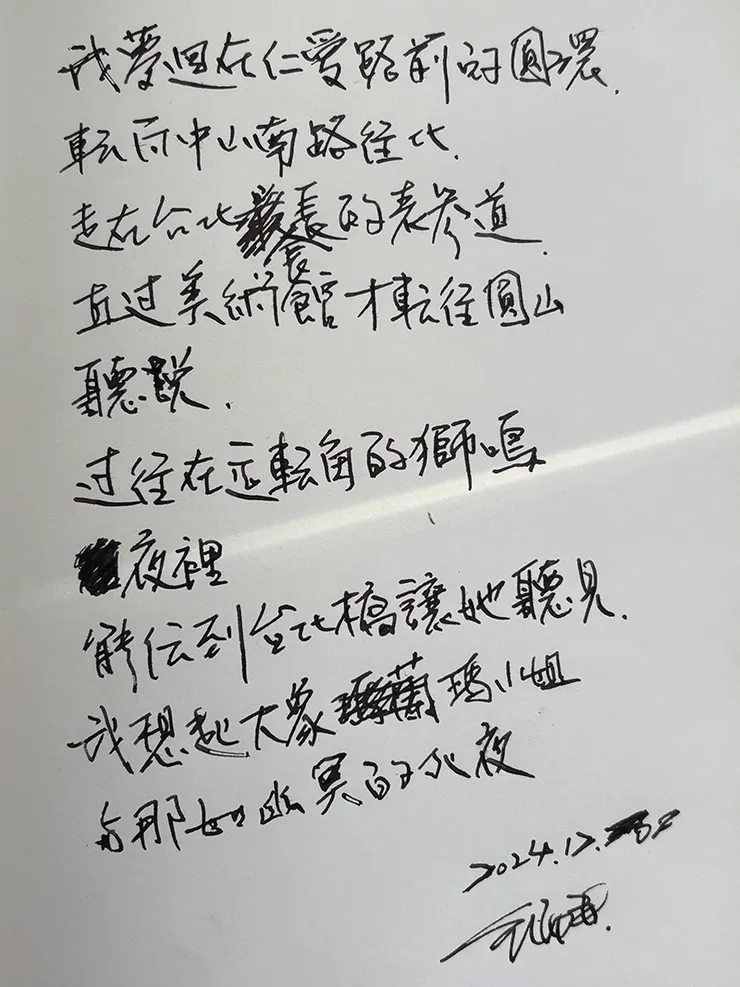 我夢迴在仁愛路前的圓環,
転向中山南路往北,
走在台北最長的表参道,
直过美術館才転往圓山
聽說,
过往在逆転角的獅鳴
夜裡
能伝到台北橋讓她聽見,
我想起大象蘭瑪小姐
与那如幽冥的北夜
2024.12.